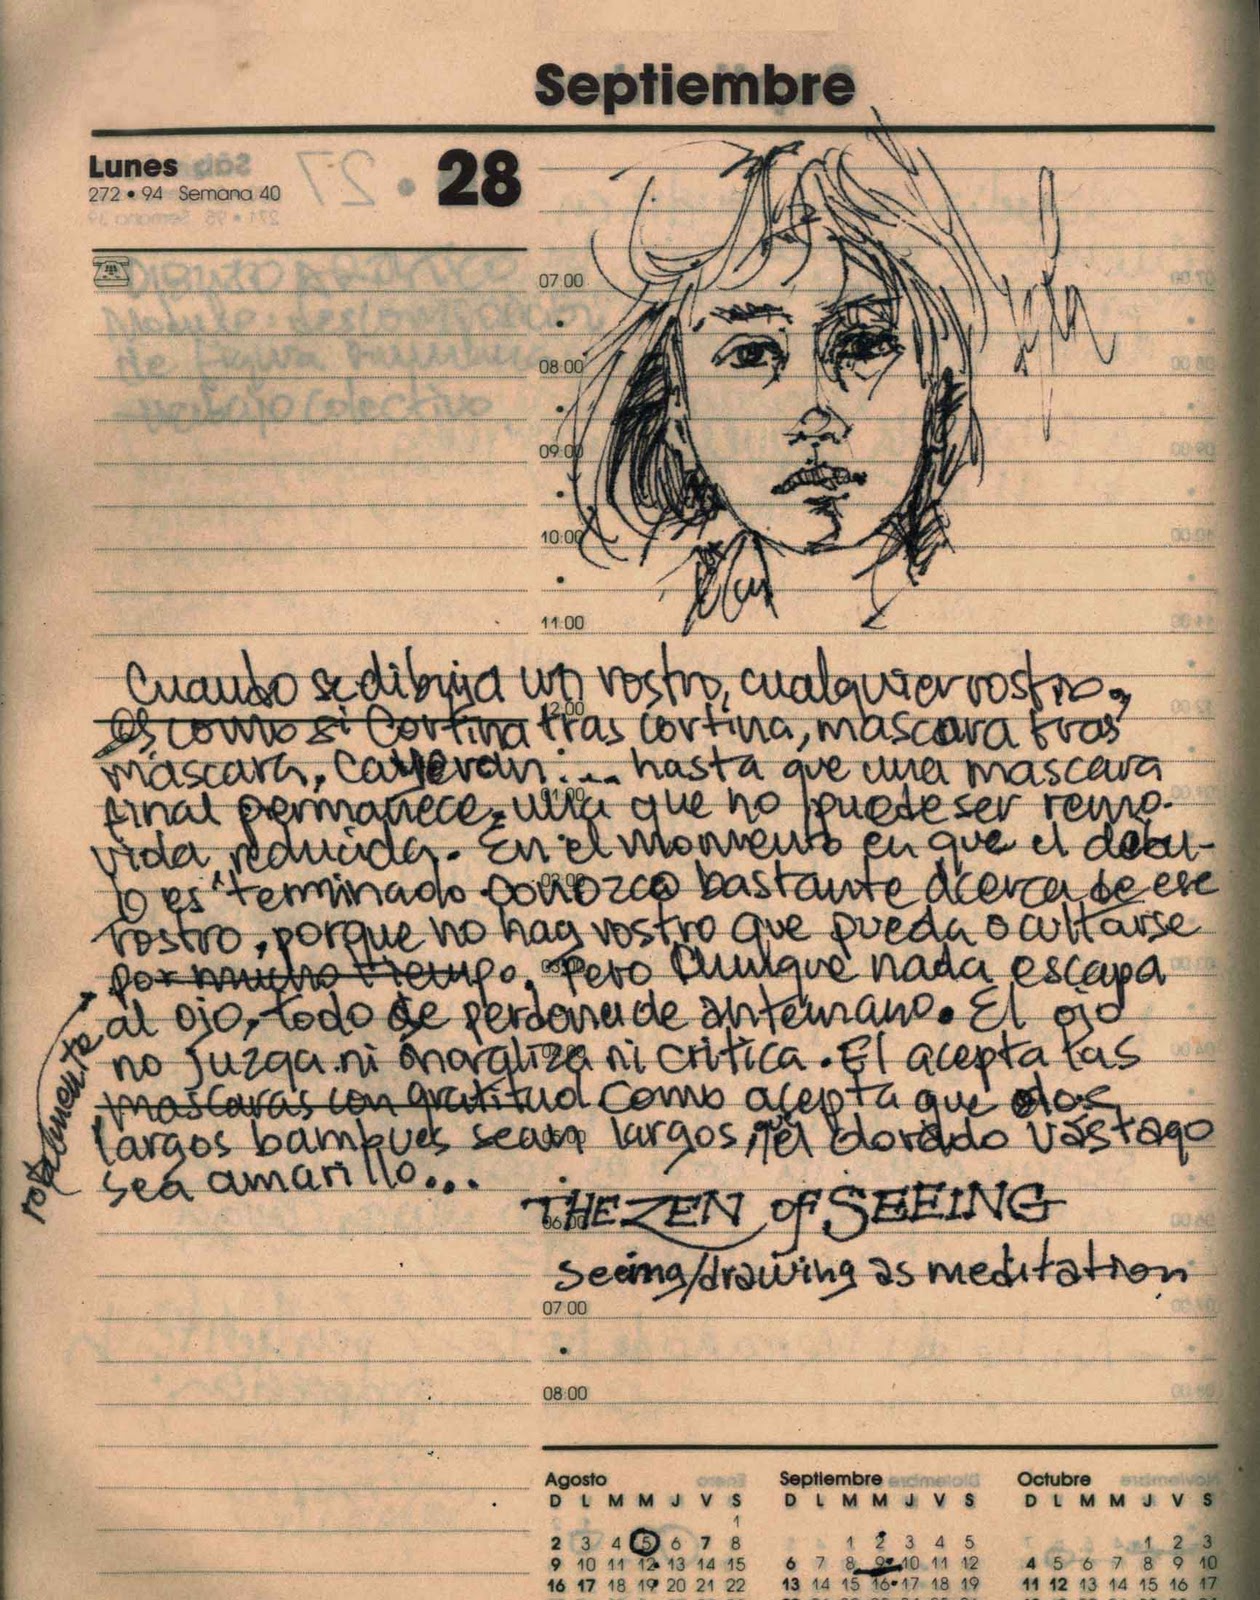 Septiembre
Lunes 28
272 • 94 Semana 40
07 00
08 00
09 00
10 00
11 00
Cuando se dibuja un rostro, cualquier rostro,
es como si Cortina tras cortina, mascara tras
máscara, cayeran ... hasta que una mascara
final permanece, una que no puede ser remo-
vida, reducida. En el momento en que el dibu-
jo es terminado conozco bastante acerca de ese
rostro, porque no hay rostro que pueda ocultarse
por mucho tiempo. Pero aunque nada escapa
al ojo, todo se perdona de antemano. El ojo
no juzga ni moraliza ni critica. El acepta las
mascaras con gratitud como acepta que los
largos bambues sean largos, que el dorado vástago
sea amarillo...
THE ZEN of SEEING
seeing/drawing as meditation
07 00
08 00
Agosto
D L M M J V S
1
2 3 4 5 6 7 8
9 10 11 12 13 14 15
16 17 18 19 20 21 22
Septiembre
D L M M J V S
1 2 3 4 5
6 7 8 9 10 11 12
13 14 15 16 17 18 19
Octubre
D L M M J V S
1 2 3
4 5 6 7 8 9 10
11 12 13 14 15 16 17